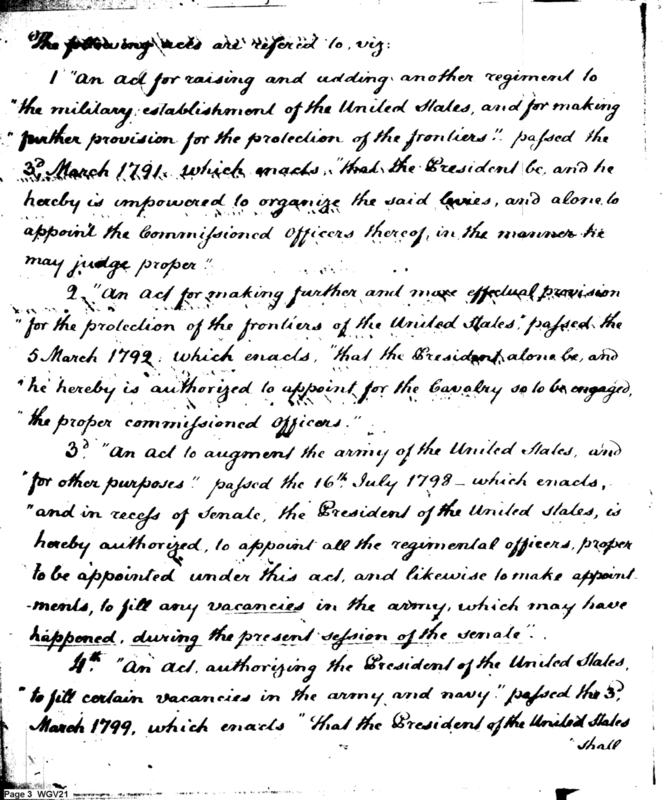 "The following acts are refered to, viz:
1 "An act for raising and adding another regiment to
"the military establishment of the United States, and for making
"further provision for the protection of the frontiers." passed the
3d. March 1791. which enacts, "that the President be, and he
hereby is impowered to organize the said levies, and alone to
appoint the Commissioned Officers thereof, in the manner he
may judge proper".
2. "An Act for making further and more effectual provision
"for the protection of the frontiers of the United States," passed the
5 March 1792. which enacts, "that the President alone be, and
"he hereby is authorized to appoint for the Cavalry so to be engaged,
"the proper commissioned Officers."
3d. "An Act to augment the army of the United States, and
"for other purposes" passed the 16th July 1798 - which enacts,
"and in recess of Senate, the President of the United States, is
hereby authorized, to appoint all the regimental officers, proper
to be appointed under this act, and likewise to make appoint-
-ments, to fill any vacancies in the army, which may have
happened, during the present session of the senate".
4th. "An Act, authorizing the President of the United States,
"to fill certain vacancies in the army and navy." passed the 3d.
March 1799, which enacts "that the President of the United States
"shall
Page 3 WGV21